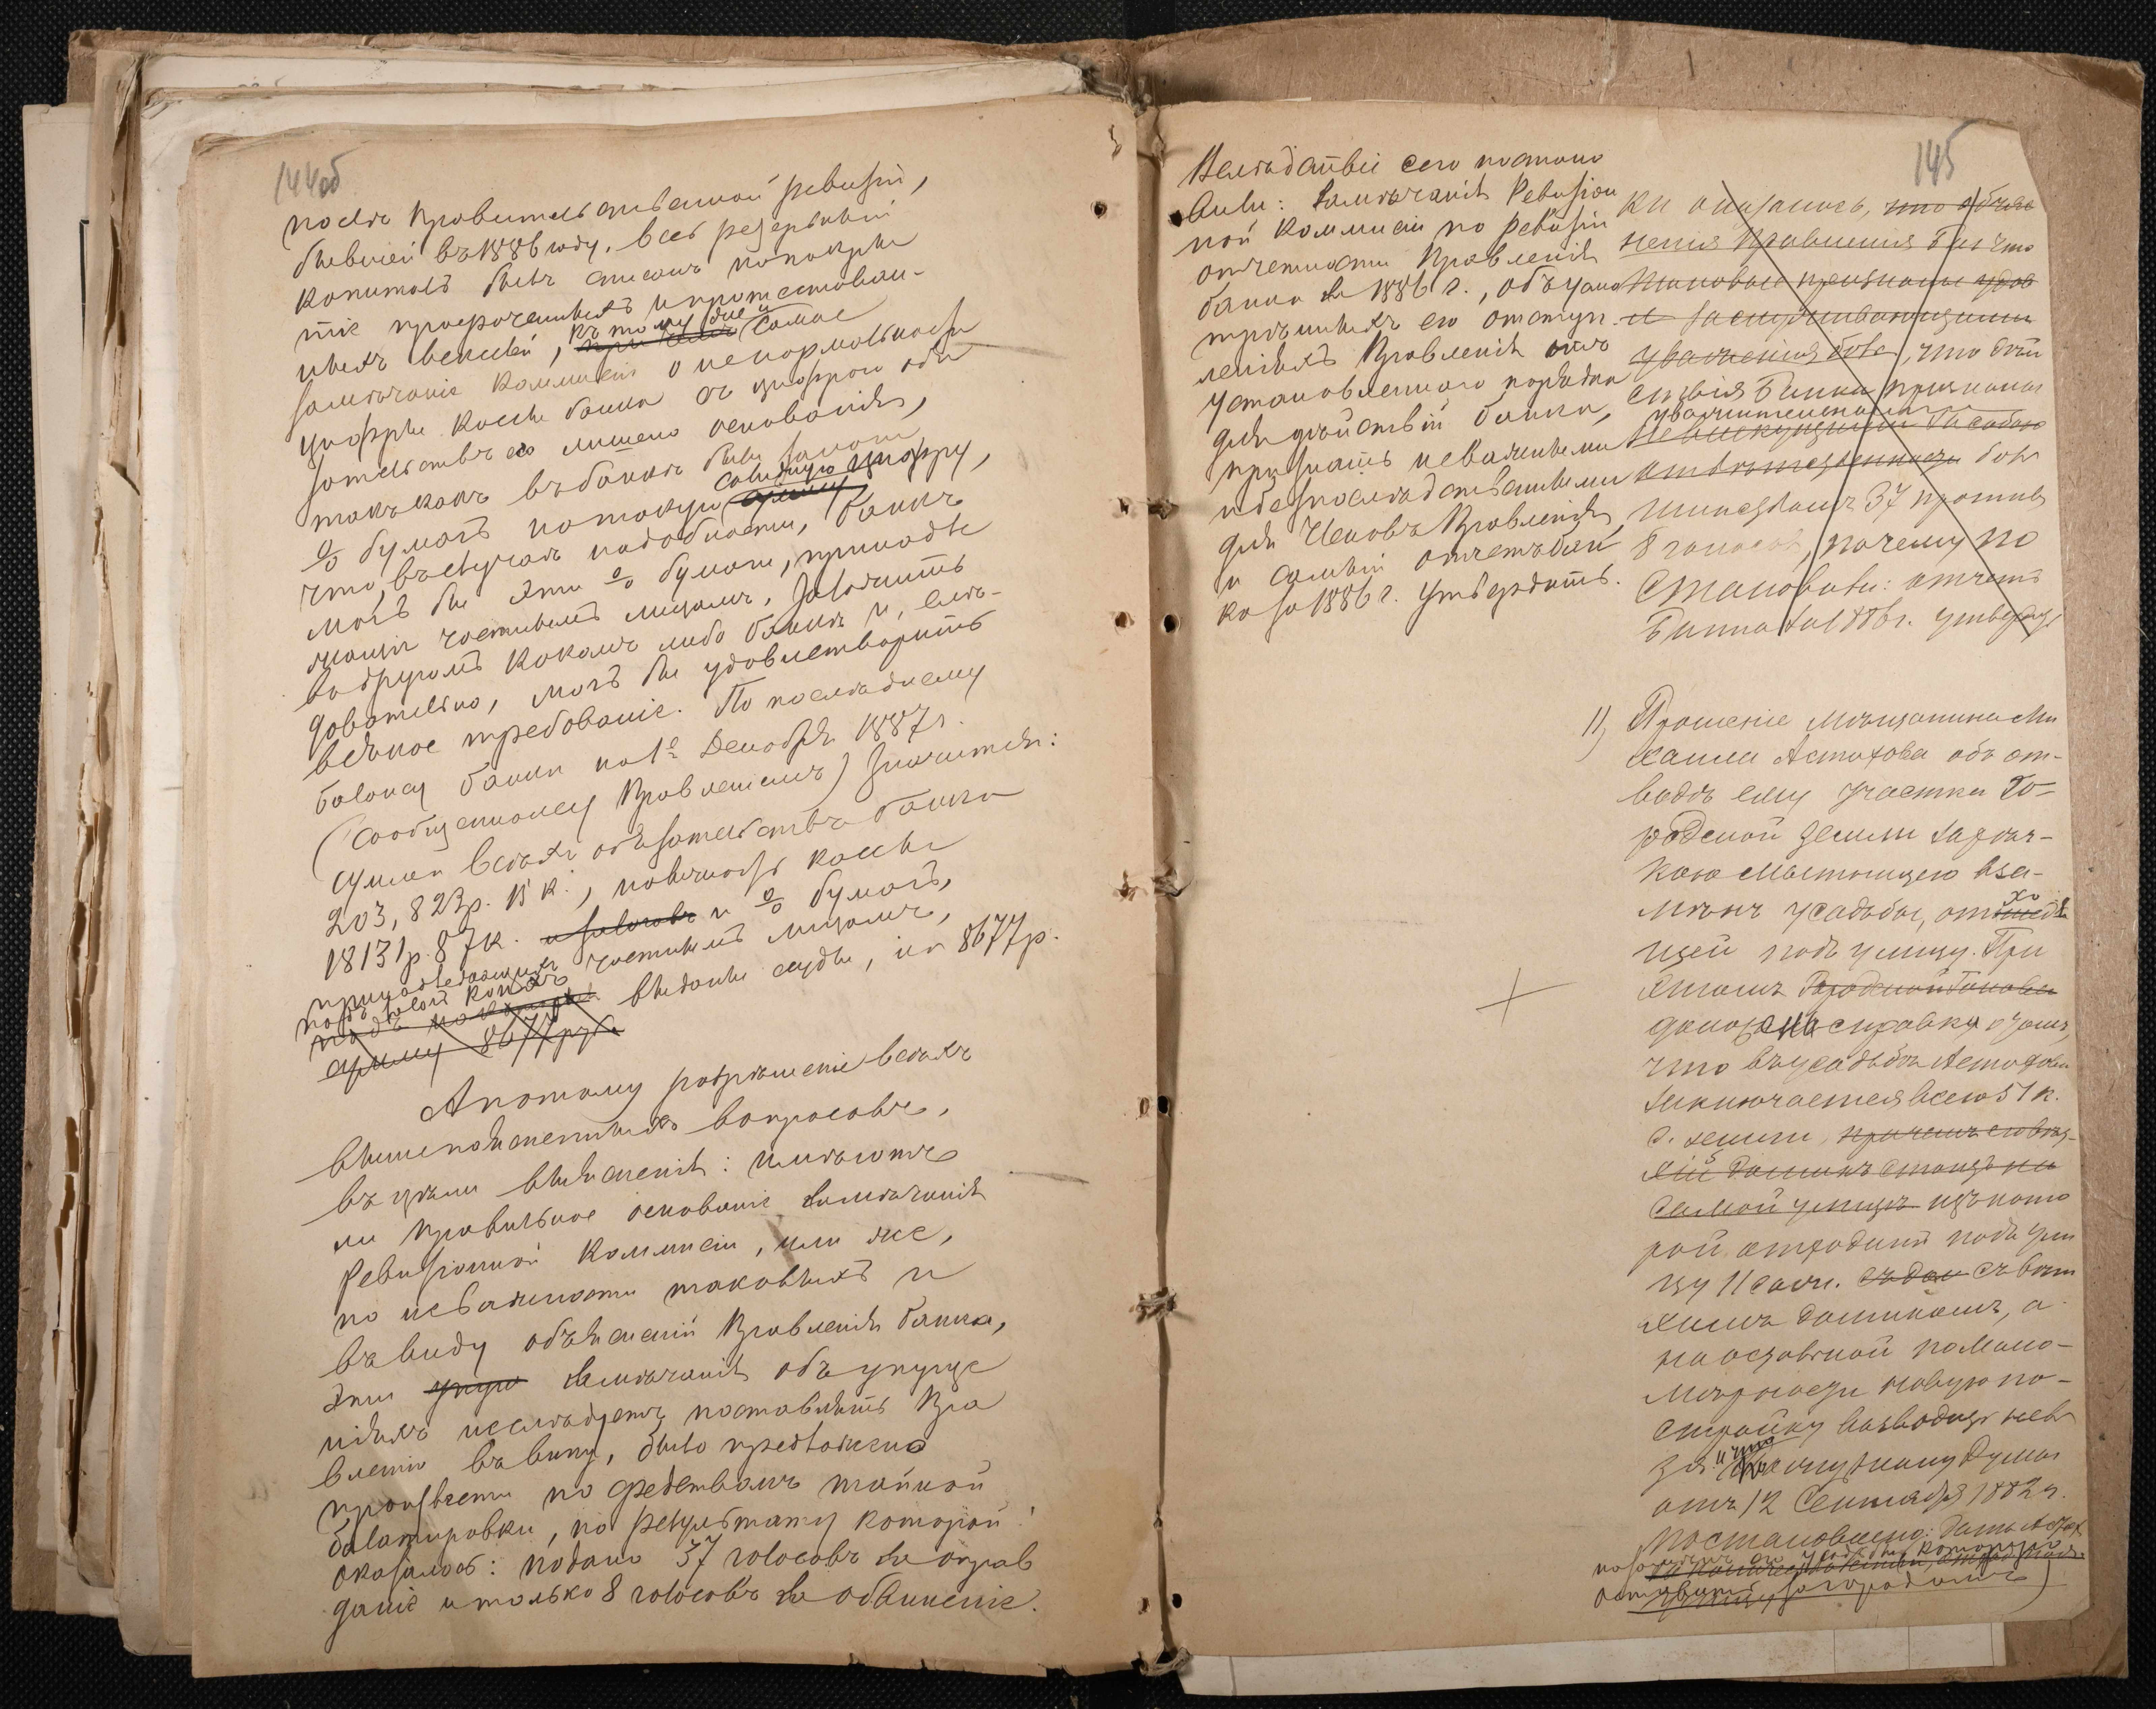 144об
послѣ Правительственной ревизіи,
бывшей въ 1886 году. Весь резервный
капиталъ былъ списанъ на покры
тіе просроченныхъ и протестован-
ныхъ векселей, къ тому же и самое
замѣчаніе Коммисіи о ненормальности
цифры кассы банка съ цифрою обя
зательствъ его лишено основанія,
такъ какъ въ банкѣ были залоги
% бумагъ на такую солидную цифру,
что, въ случаѣ надобности, банкъ
могъ бы эти % бумаги, принадле
жащія частнымъ лицамъ, заложить
въ другомъ какомъ либо банкѣ и, слѣ-
довательно, могъ бы удовлетворить
всякое требованіе. По послѣднему
балансу банка на 1е Декабря 1887 г.
(сообщенному Правленіемъ) значится:
сумма всѣхъ обязательствъ банка
203,823 р. 15 к., наличность кассы
18131 р. 87 к. и залоговъ и % бумагъ,
принадлежащихъ частнымъ лицамъ,
подъ залогъ коихъ выданы ссуды, на 8677 р.
сумму 8677 руб
А потому разрѣшеніе всѣхъ
вышепоясненныхъ вопросовъ,
въ цѣли выясненія: имѣютъ
ли правильное основаніе замѣчанія
Ревизіонной Коммисіи, или же,
по неважности таковыхъ и
въ виду объясненій Правленія банка,
эти упущ замѣчанія объ упуще
ніяхъ не слѣдуетъ поставлять Пра
вленію въ вину, было предложено
произвести по средствамъ тайной
балатировки, по результату которой
оказалось: подано 37 голосовъ за оправ
даніе и только 8 голосовъ за обвиненіе.
145
Вслѣдствіе сего постано
вили: Замѣчанія Ревизіон
ной Коммисіи по ревизіи
отчетности Правленія
банка за 1886 г., объ усмо
трѣнныхъ ею отступ-
леніяхъ Правленія отъ
установленнаго порядка
для дѣйствій банка,
признать неважными
и безпослѣдственными
для Членовъ Правленія,
и самый отчетъ бан
ка за 1886 г. утвердить.
ки оказалось, что объяс
ненія Правленія Банка
таковые признаны удов
и заслуживающими
уваженія, что дѣй
ствія Банка признаны
уважительными
не влекущими за собою
отвѣтственности боль
шинствомъ 37 противъ
8 голосовъ, почему по
становили: отчетъ
Банка за 1886 г. утвердить
11) Прошеніе мѣщанина Ми
хаила Астахова объ от-
водѣ ему участка Го-
родской земли за рѣч-
кою Мытницею вза-
мѣнъ усадьбы, отхо
щей подъ улицу. При
этомъ Городской Головою
доложена справка о томъ,
что въ усадьбѣ Астахова
заключается всего 51 к.
с. земли, при чемъ его вет-
хій домикъ стоитъ на
самой улицѣ изъ кото
рой отходитъ подъ ули
цу 11 саж. съ дом съ вет
химъ домикомъ, а
на остальной по мало-
мѣрности новую по-
стройку возводить нель
зя и что по опредѣленію Думы
отъ 12 Сентября 1882 г.
Постановлено: дать Астах